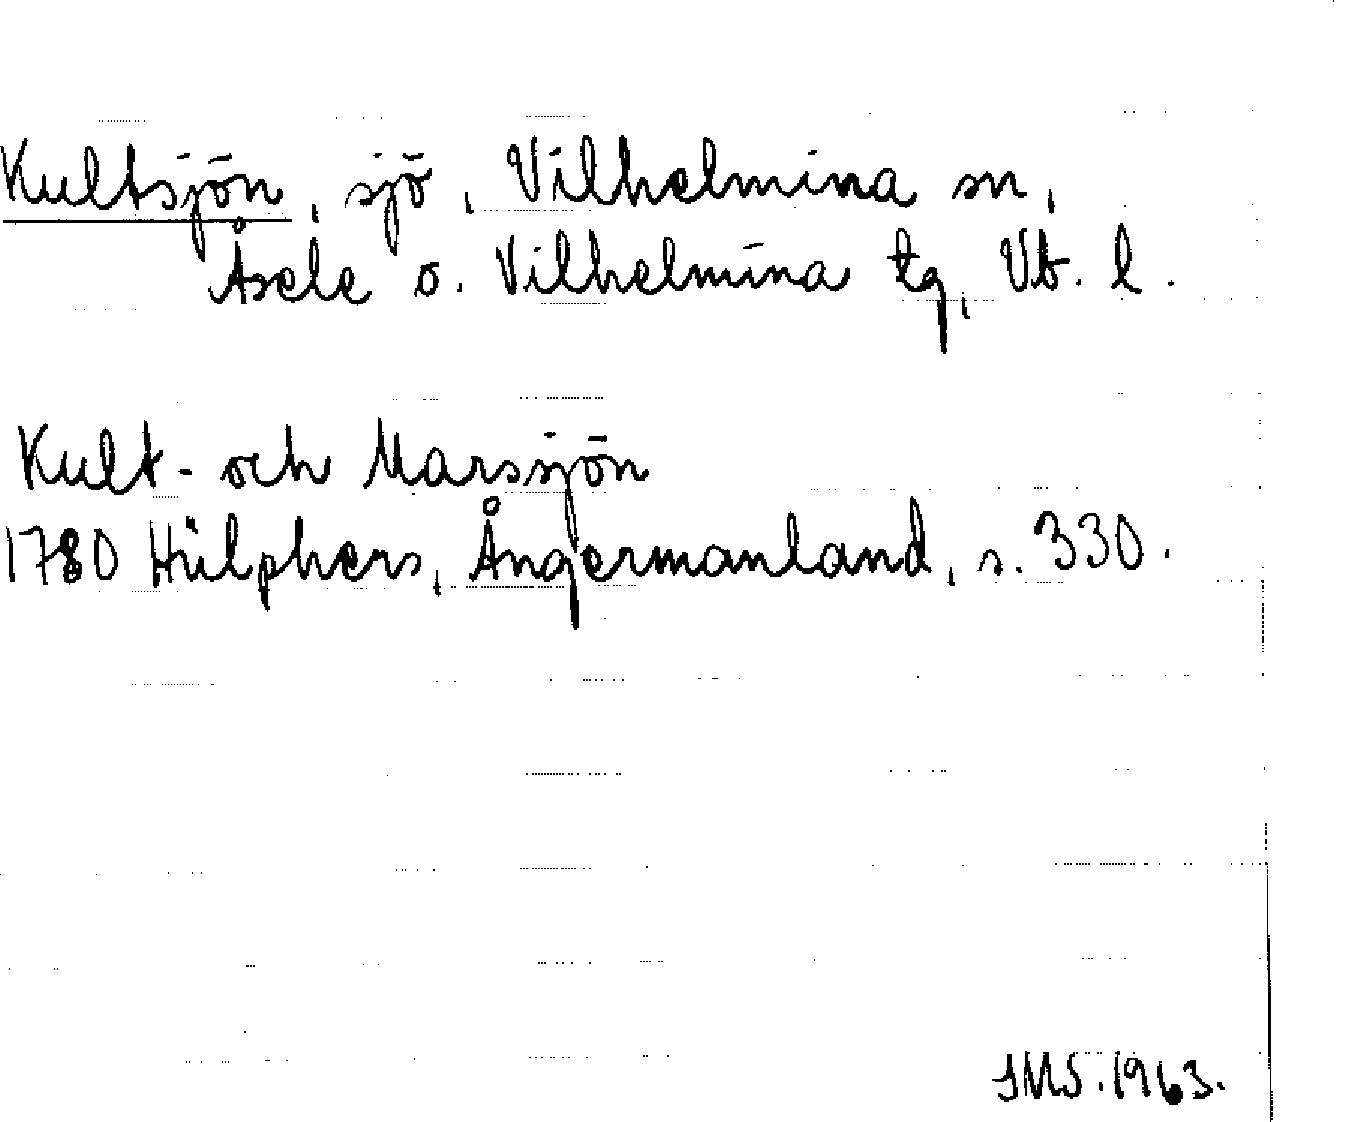 Kultsjön, sjö, Vilhelmina sn,
Åsele o. Vilhelmina tg, Vb. l.
Kult- och Marssjön
1780 Hülphers, Ångermanland, s. 330.
SMS. 1963.